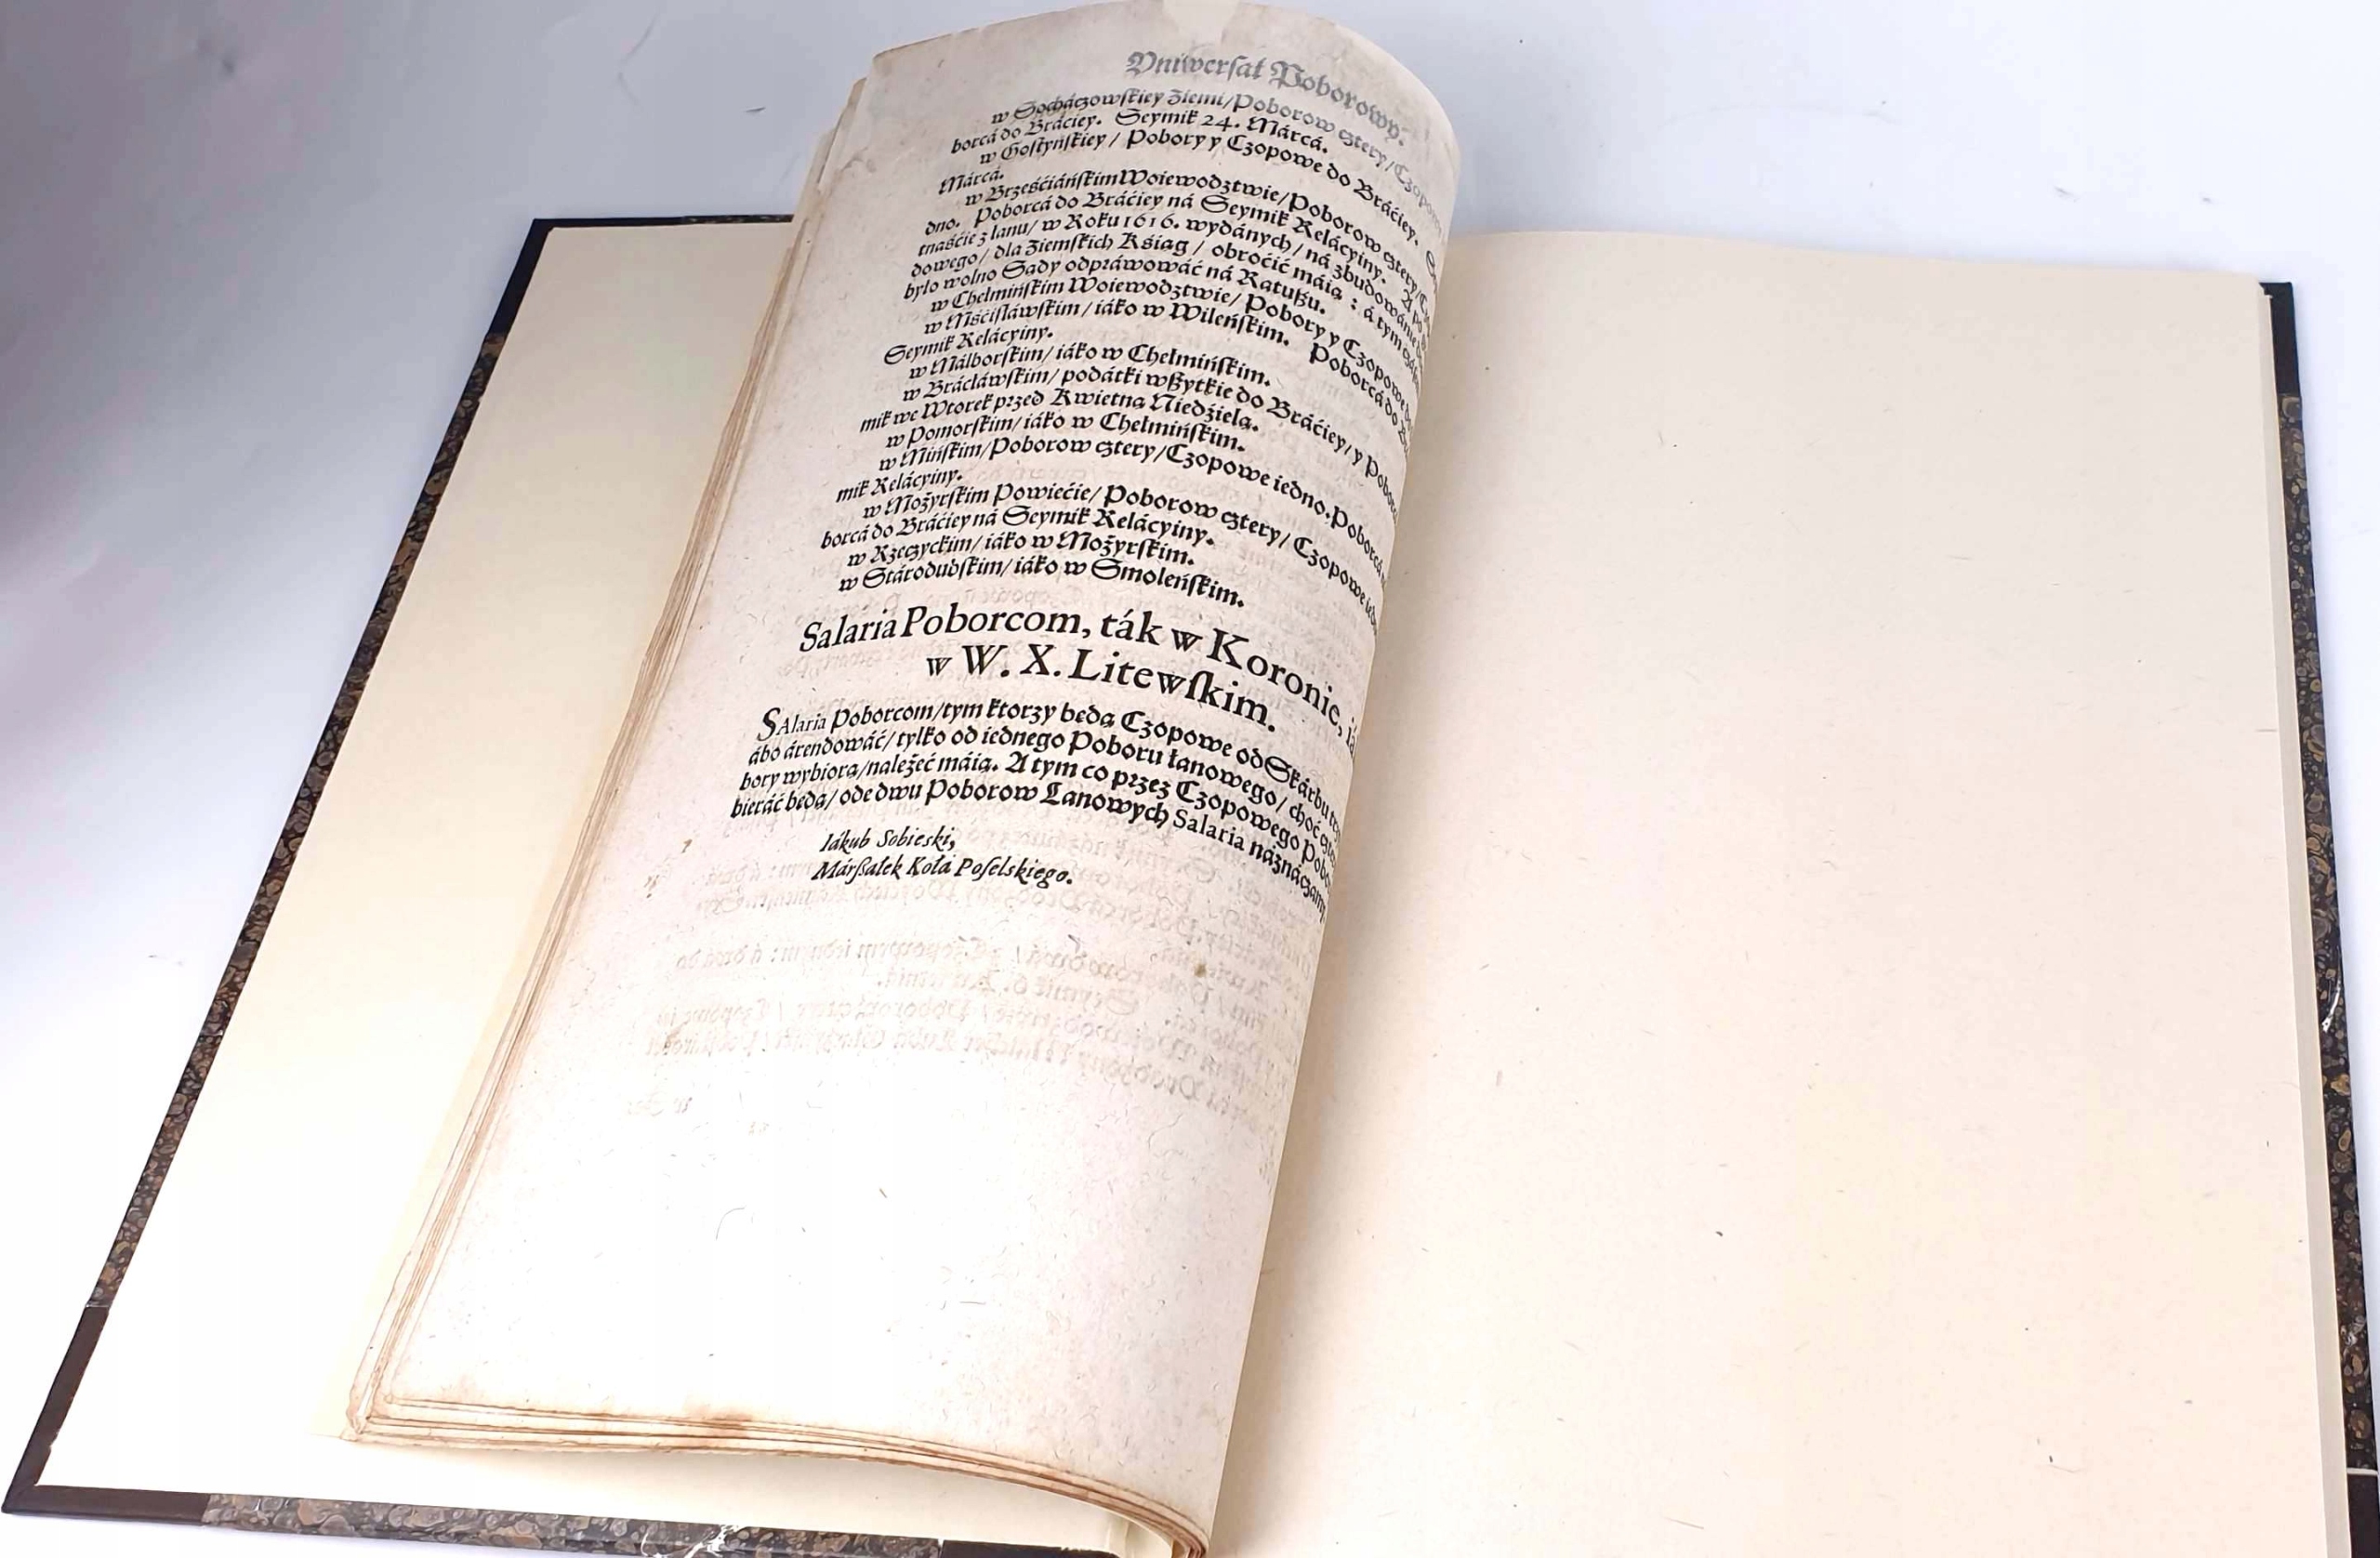 Vniwersał Poborowy.
w Socháczowſkiey Ziemi/Poborow cztery/
borcá do Bráciey. Seymik 24. Márcá.
w Goſtynſkiey / Pobory y Czopowe do Bráćiey.
Márcá.
w Brześćiáńſkim Woiewodztwie/Poborow cztery/
dno. Poborcá do Bráćiey ná Seymik Relácyiny. A po
tnaśćie z łanu/ w Roku 1616. wydánych/ ná zbudowánie
dowego/ dla Ziemſkich Kśiąg / obroćić máią : á tym
było wolno Sądy odpráwowáć ná Ratuſzu.
w Chełmińſkim Woiewodztwie/ Pobory y Czopowe
w Mśćiſláwſkim / iáko w Wileńſkim. Poborcá do
Seymik Relácyiny.
w Málborſkim/ iáko w Chełmińſkim.
w Brácłáwſkim/ podátki wſzytkie do Bráćiey/ y
mik we Wtorek przed Kwietną Niedźielą.
w Pomorſkim/ iáko w Chełmińſkim.
w Mińſkim/Poborow cztery/Czopowe iedno. Poborcá
mik Relácyiny.
w Możyrſkim Powiećie/ Poborow cztery/ Czopowe
borcá do Bráćiey ná Seymik Relácyiny.
w Rzeczyckim/ iáko w Możyrſkim.
w Stárodubſkim/ iáko w Smoleńſkim.
Salaria Poborcom, ták w Koronie,
w W. X. Litewſkim.
SAlaria Poborcom/tym ktorzy będą Czopowe od Skárbu
ábo árendowáć/ tylko od iednego Poboru łanowego/ choć
bory wybiorą/należeć máią. A tym co przez Czopowego
bieráć będą/ ode dwu Poborow Łanowych Salaria náznáczamy
Iákub Sobieski,
Márſzałek Kołá Poſelskiego.